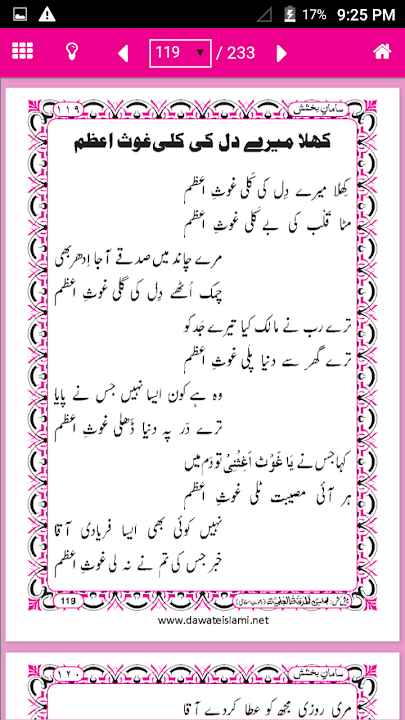 17% 9:25 PM
119 / 233
سامانِ بخشش ١١٩
کھلا میرے دل کی کلی غوث اعظم
کِھلا میرے دِل کی کَلی غوثِ اَعظم
مٹا قَلْب کی بے کَلی غوثِ اَعظم
مرے چاند میں صدقے آجا اِدھر بھی
چمک اُٹھے دِل کی گلی غوثِ اَعظم
ترے رب نے مالک کیا تیرے جَد کو
ترے گھر سے دنیا پلی غوثِ اَعظم
وہ ہے کون ایسا نہیں جس نے پایا
ترے دَر پہ دنیا ڈَھلی غوثِ اَعظم
کہا جس نے یَا غَوْث اَغِثْنِیْ تو دَم میں
ہر آئی مصیبت ٹلی غوثِ اَعظم
نہیں کوئی بھی ایسا فریادی آقا
خبر جس کی تم نے نہ لی غوثِ اَعظم
119
www.dawateislami.net
سامانِ بخشش ١٢٠
مری روزی مجھ کو عطا کردے آقا